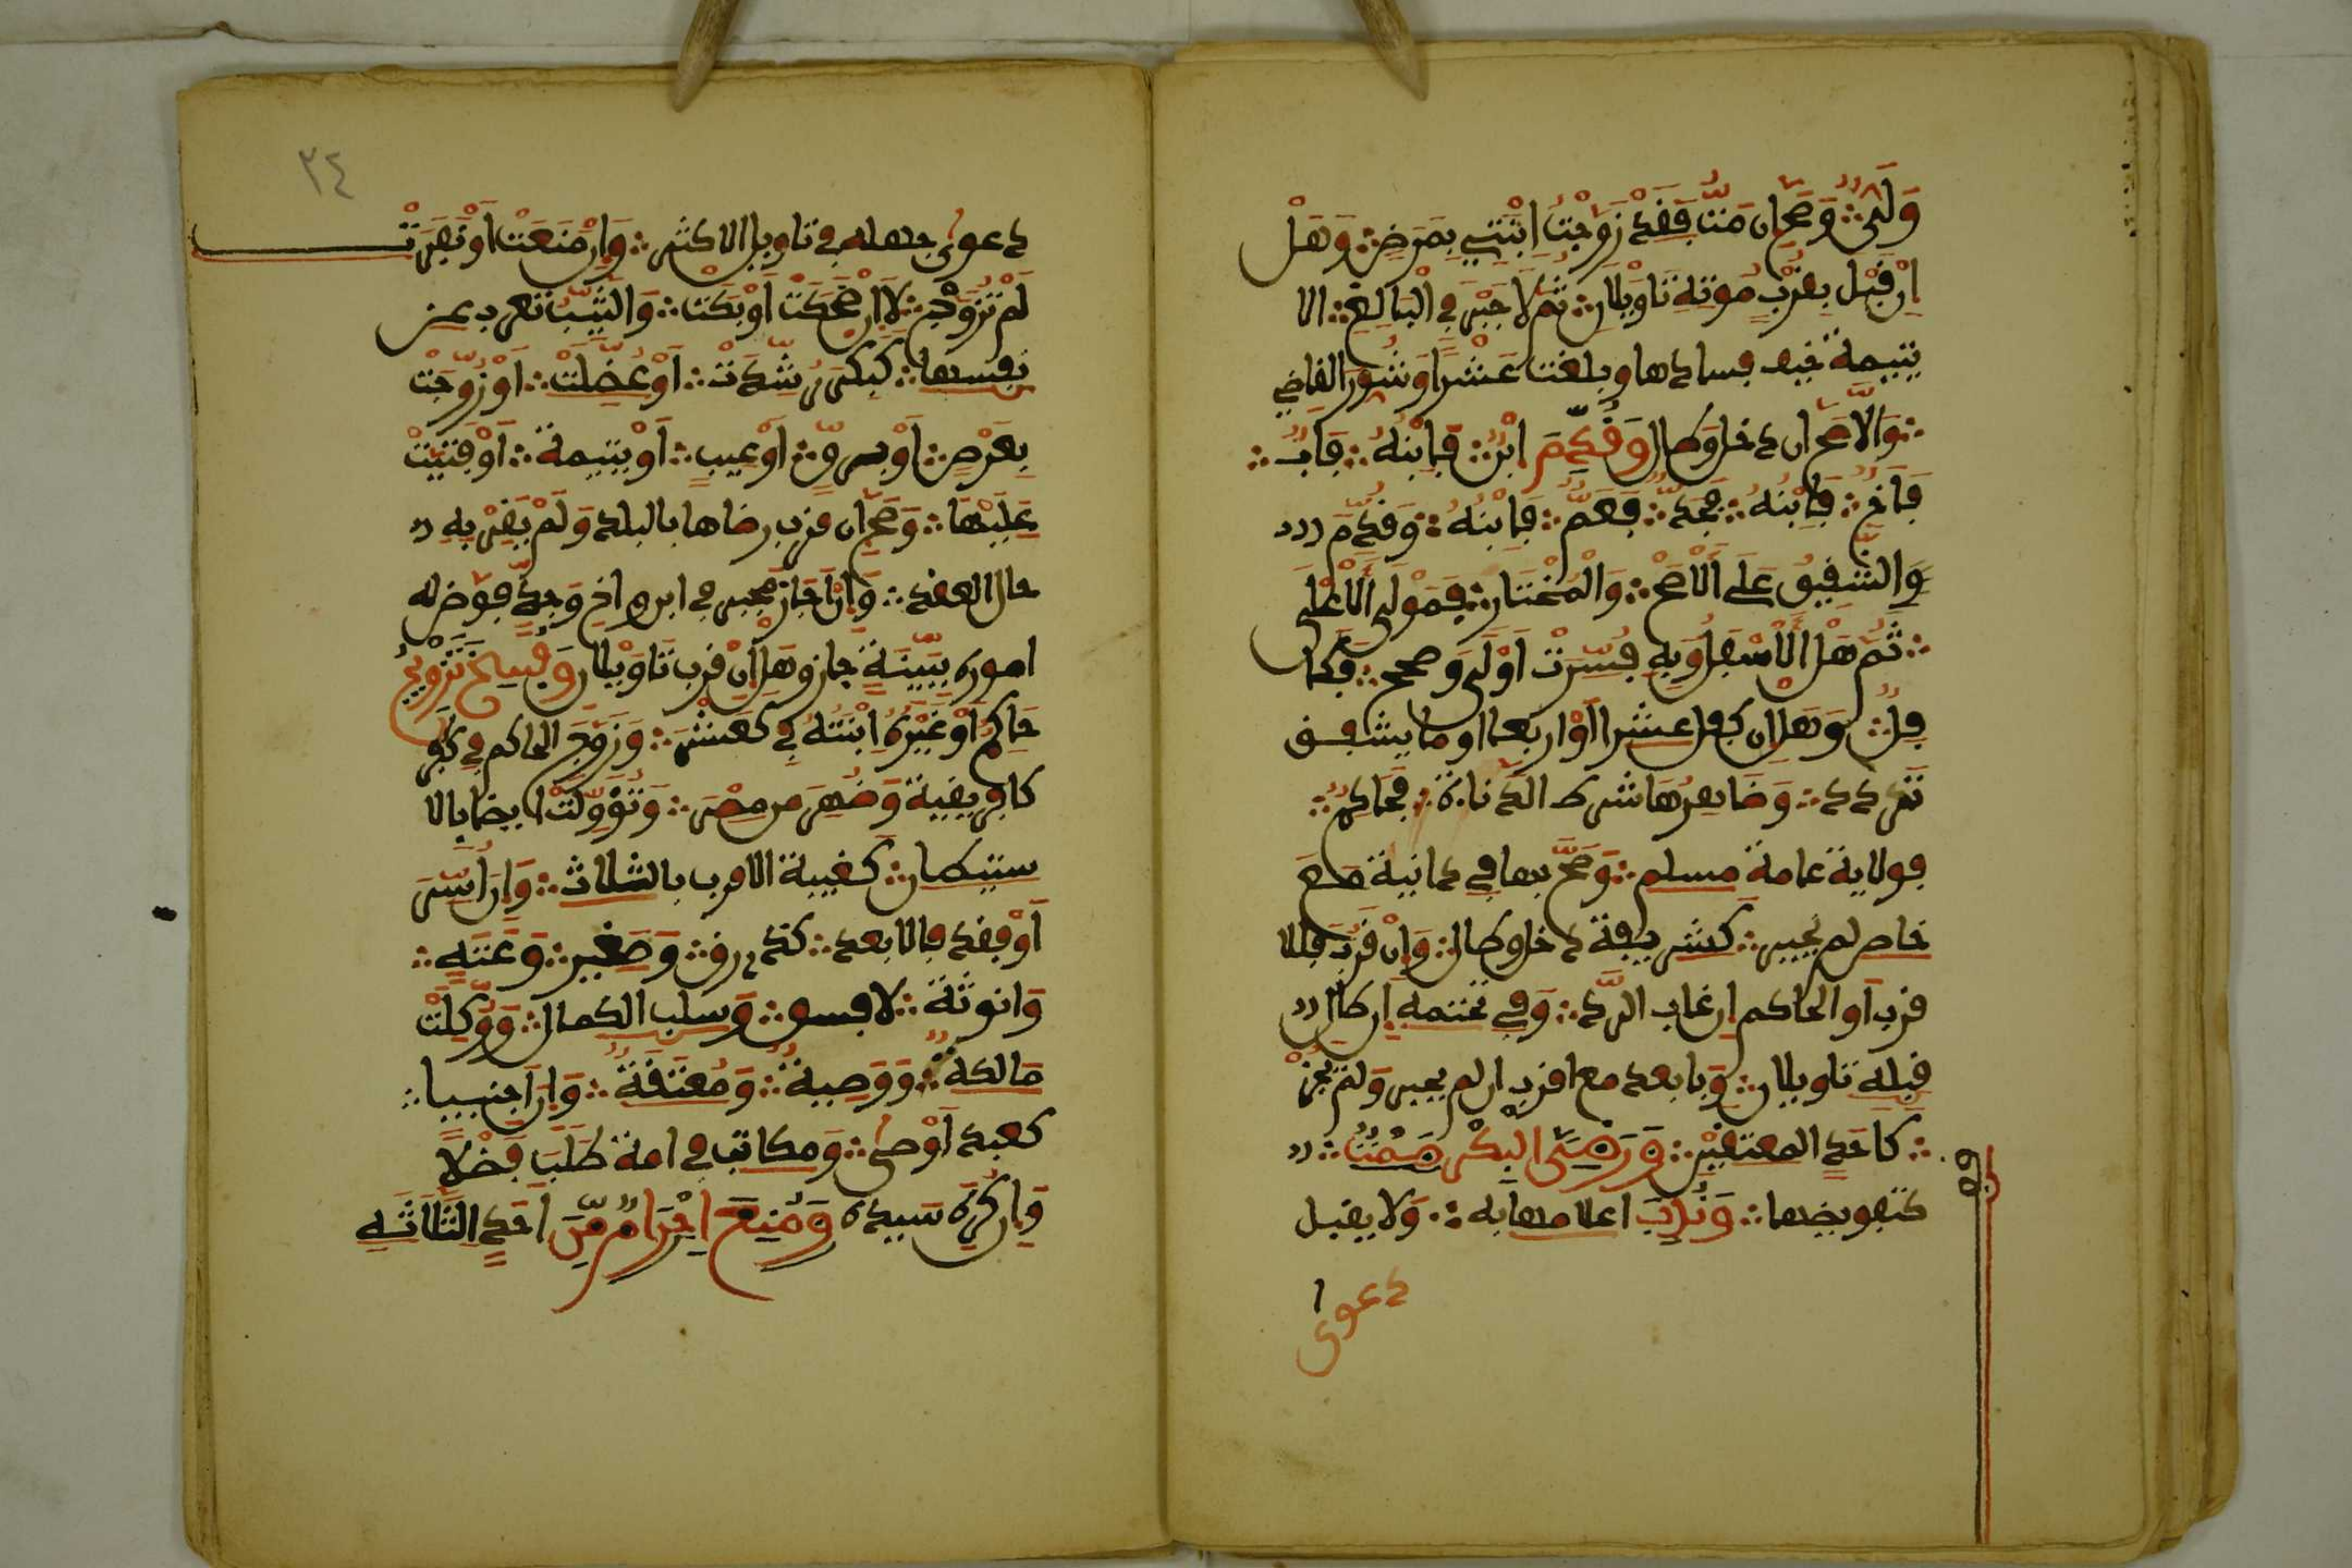 وَلِيٌّ وَصَحَّ ان مت فَقَدْ زَوَّجْتُ ابْنَتِي بِمَرَضٍ وَهَلْ
اِنْ قَبِلَ بِقُرْبِ مَوْتِهِ تَاوِيلَانِ ثُمَّ لَا جَبْرَ فِي الْبَالِغِ الا
يتيمة خيف فسادها وبلغت عَشْرًا وَشُووِرَ القاضي
وَالَّا صَحَّ ان دخل وَطال وَقُدِّمَ ابْنٌ فَابْنُهُ فَابٌ
فَاخٌ فَابْنُهُ فَجَدٌّ فَعَمٌّ فَابْنُهُ وَقُدِّمَ
وَالشَّقِيقُ عَلَى الْأَصَحِّ وَالْمُخْتَارِ فَمَوْلَى الْأَعْلَى
ثُمَّ هَلِ الْأَسْفَلُ وَبِهِ فُسِّرَتْ اَوْلَى وصحح فَكَا
فِلٌ وَهَلْ ان كفل عشرا اَوْ اربعا او ما يشفق
تَرَدد وَظَاهِرُهَا شرط الدَّناءة فَحَاكِمٌ
فولاية عامة مسلم وَصَحَّ بها في دانية مَعَ
خاص لم يُجبر كشريفة دخل وطال وَاِنْ قَرُبَ فللا
قرب اَو الحاكم ان غاب الرَّد وَفِي تحتمه اِن طال
قبله تاويلان وَبابعد مع اقرب ان لم يجبر وَلَمْ يَجُزْ
كاحَدِ المعتقَيْنِ وَرِضَى الْبِكْرِ صَمْتٌ
كتفويضها وَنُدِبَ اعلامها به وَلا يقبل
دعوى
٢٤
دعوى جهله في تاويل الاكثر وَاِن مَنَعَتْ اَوْ نَفَرَتْ
لَمْ تُزَوَّجْ لَا اِن ضَحِكَتْ اَوْ بَكَت وَالثَّيِّبُ تعرب عن
نفسها كَبِكْر رُشِّدَتْ اَوْ عُضِلَتْ اَوْ زُوِّجَتْ
بِعَرْضٍ اَوْ بِرِقٍّ اَوْ عيبٍ اَوْ يتيمة اَوْ افْتِيتَ
عَلَيْهَا وَصَحَّ ان قرب رضاها بالبلد وَلَمْ يُقِرَّ بِهِ
حال العقد وَاِنْ اَجَازَ مُجبر في ابن واخ وَجدٍّ فَوض له
اموره بِبَيِّنَةٍ جاز وَهَل اِنْ قرب تَاوِيلان وَفُسِخَ تَزْوِيجُ
حَاكِمٍ اَوْ غَيْرِهِ ابْنَتَهُ فِي كعشر وَزَوَّجَ الحاكم فِي كَافر
كافريقية وَظُهِّرَ من مصر وَتُؤُوِّلَتْ ايضا بالا
ستيطان كغيبة الاقرب بالثلاث وَاِن اُسِرَ
اَوْ فقد فالابعد كَذِي رق وَصَغير وَعَتَهٍ
وَانوثة لا فسق وَسلب الكمال وَوَكَّلَتْ
مَالكة وَوَصِية وَمُعْتِقَةٌ وَاِن اَجنبيا
كعبد اَوْصى وَمكاتب في امة طَلَبَ فَضْلًا
وَاِن كَرِهَ سيده وَمَنَعَ اِحْرَامٌ مِّنْ اَحَدِ الثَّلَاثَةِ